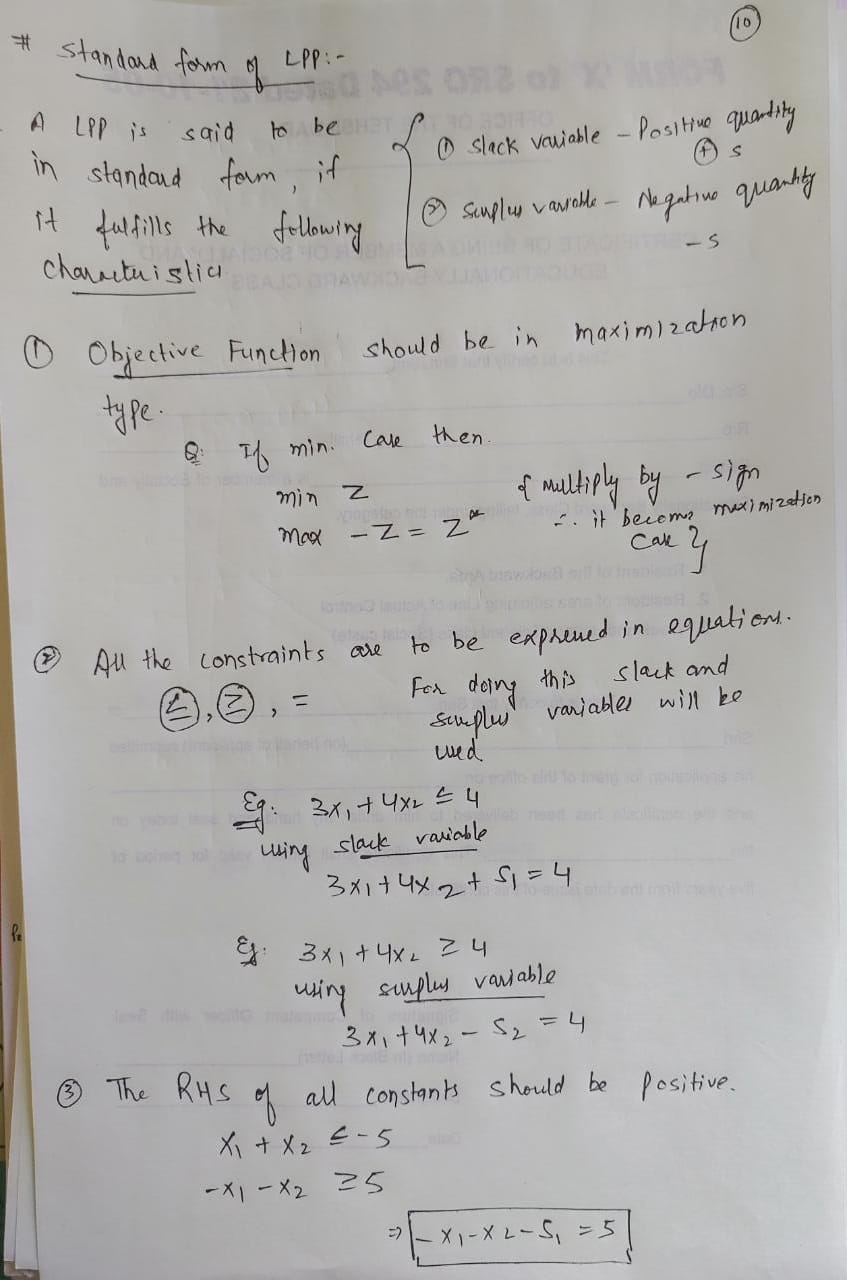 10
# Standard form of LPP:-
A LPP is said to be
in standard form, if
it fulfills the following
characteristics
{ ① Slack variable - Positive quantity
⊕ s
② Surplus variable - Negative quantity
- s
① Objective Function should be in maximization
type.
Q: If min. Case then.
min Z { multiply by - sign
max - Z = Z* ∴ it becomes maximization
Case }
② All the constraints are to be expressed in equations.
≤, ≥, = For doing this slack and
surplus variables will be
used
Eg: 3x₁ + 4x₂ ≤ 4
using slack variable
3x₁ + 4x₂ + S₁ = 4
Eg: 3x₁ + 4x₂ ≥ 4
using surplus variable
3x₁ + 4x₂ - S₂ = 4
③ The RHS of all constants should be positive.
x₁ + x₂ ≤ -5
-x₁ - x₂ ≥ 5
⇒ -x₁ - x₂ - S₁ = 5